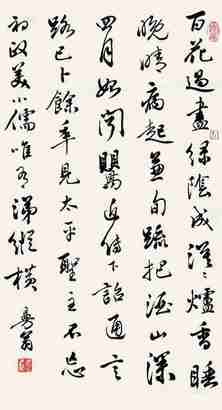 百花過盡綠陰成漠々爐香睡
晚晴病起兼旬疏把酒山深
四月始聞鶯近傳下詔通言
路已卜餘年見太平聖主不忘
初政美小儒唯有涕縱橫